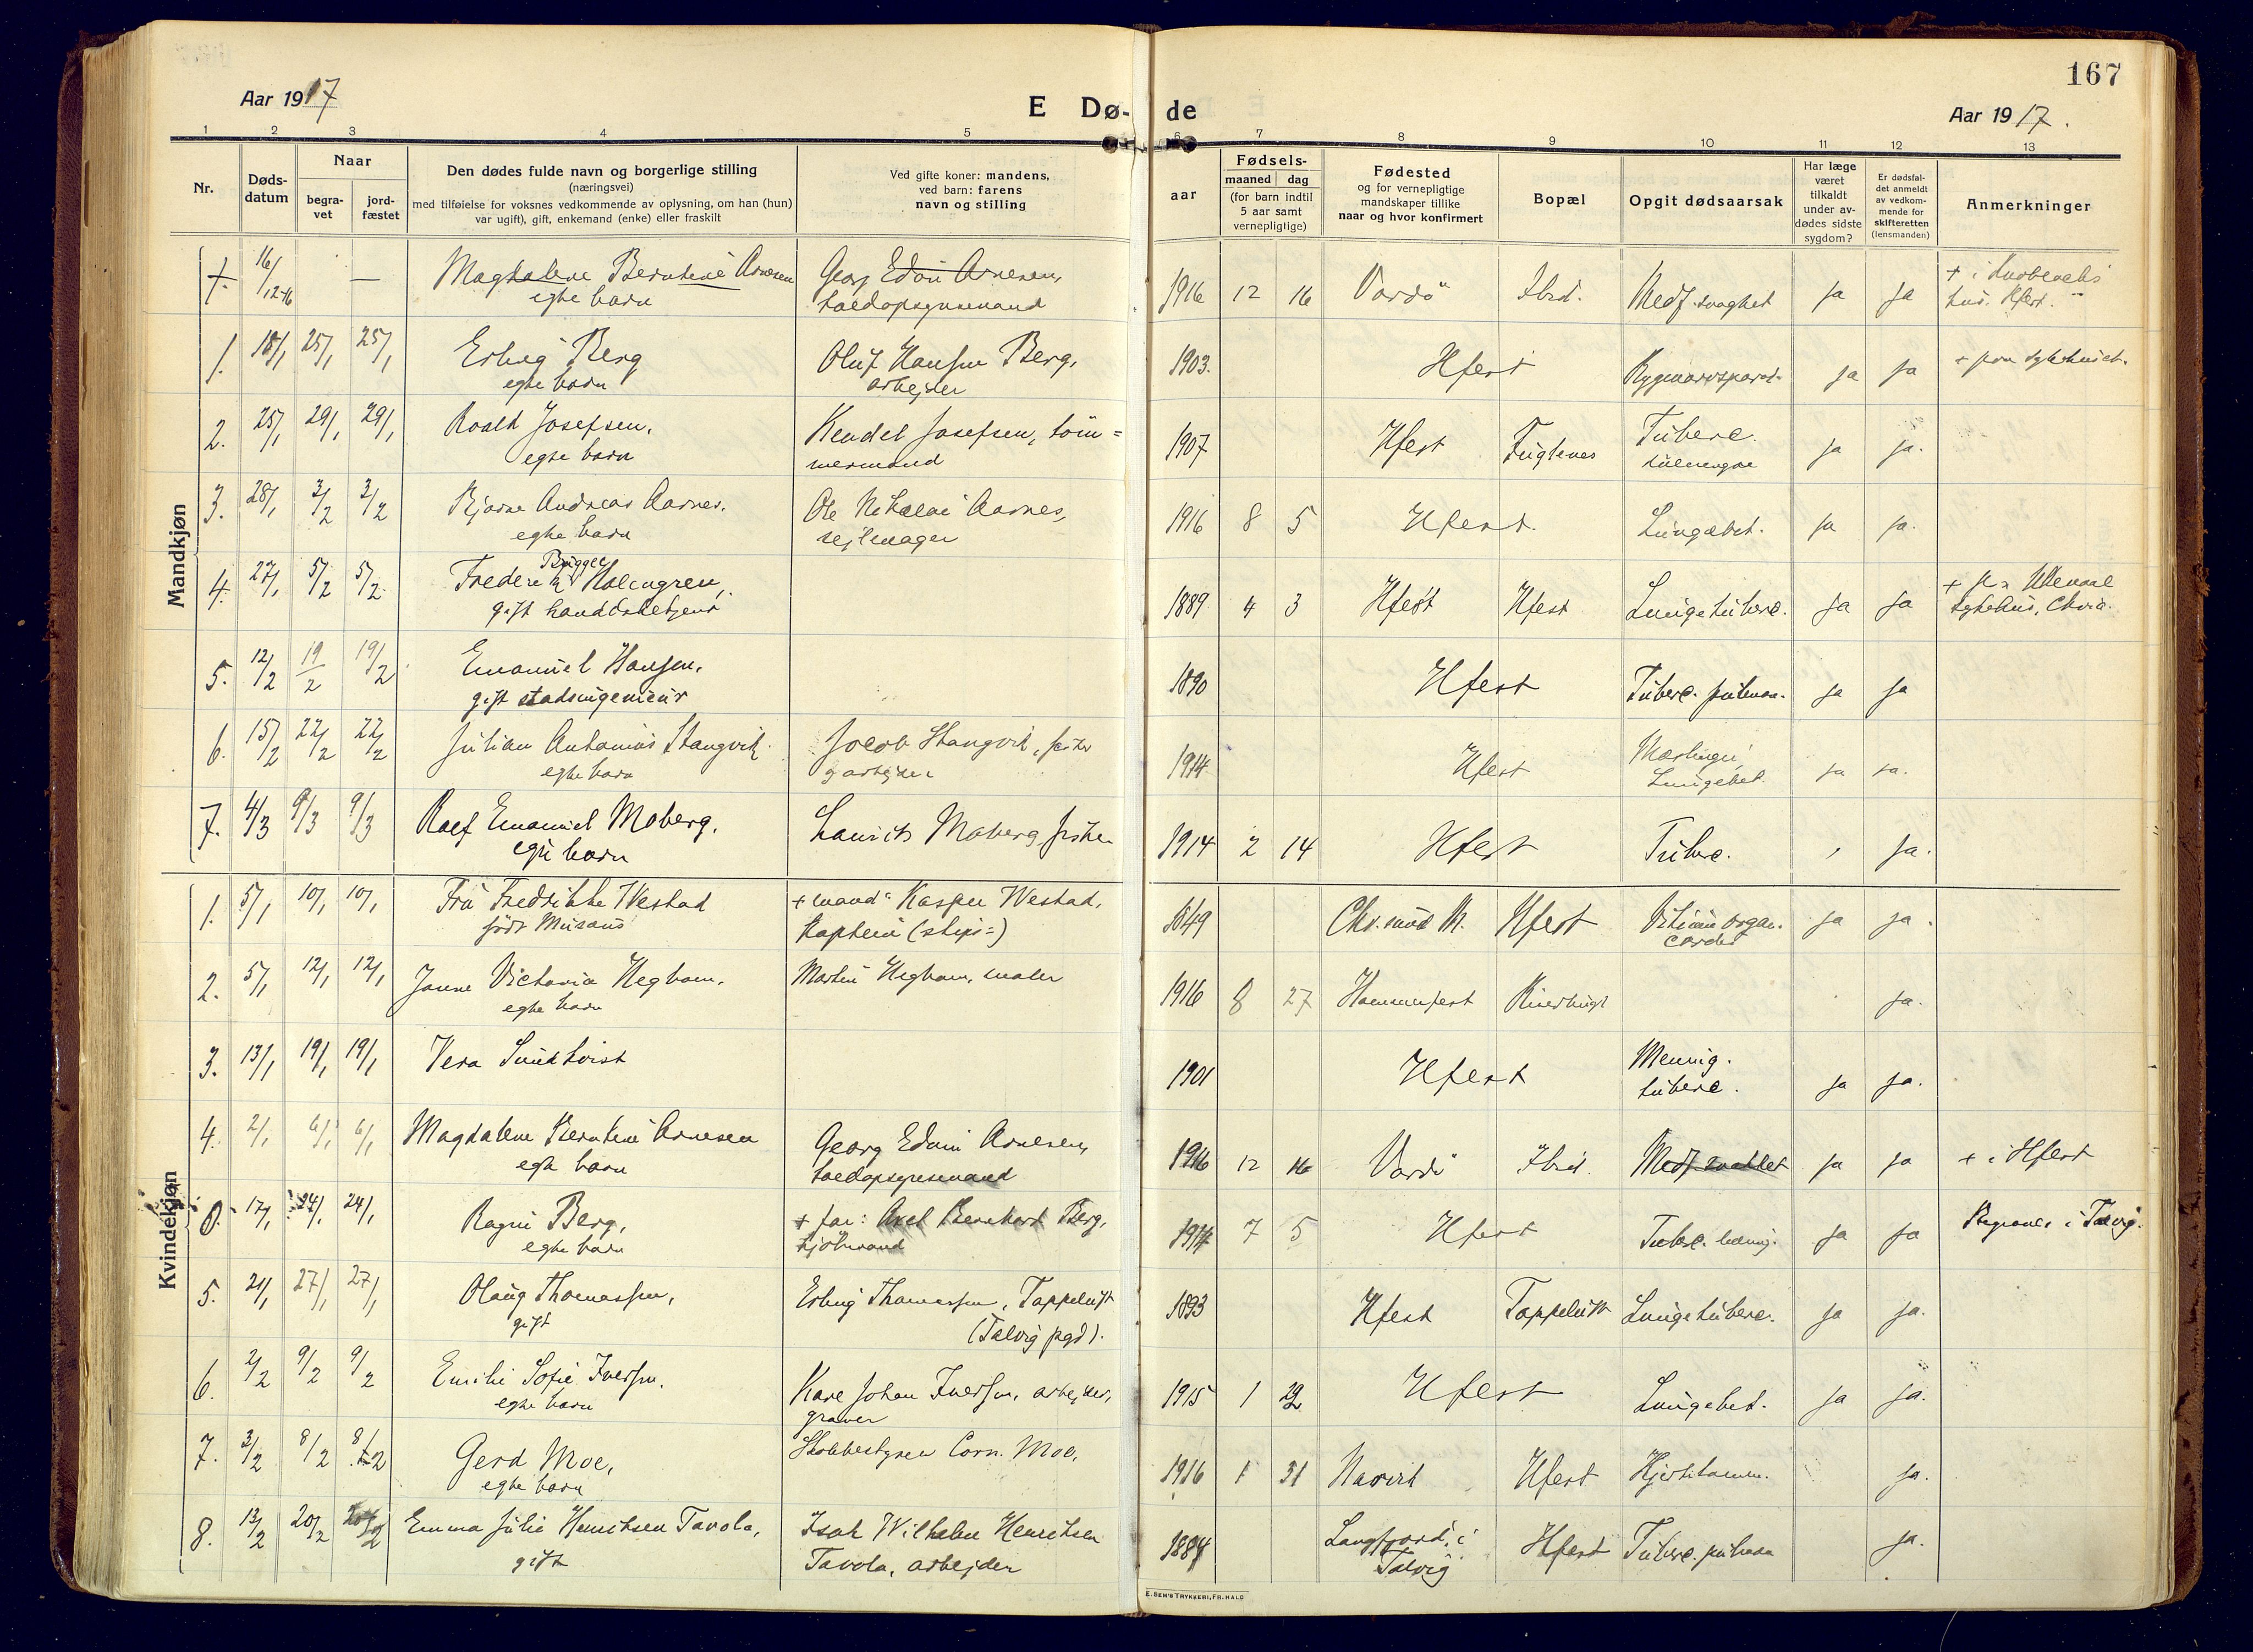 167
Aar 1917
E Dø-
de
Aar 1917.
1 2 3 4 5 6 7 8 9 10 11 12 13
Nr.
Døds-
datum
Naar
begra-
vet
jord-
fæstet
Den dødes fulde navn og borgerlige stilling
(næringsvei)
med tilføielse for voksnes vedkommende av oplysning, om han (hun)
var ugift), gift, enkemand (enke) eller fraskilt
Ved gifte koner: mandens,
ved barn: farens
navn og stilling
Fødsels-
aar
maaned dag
(for barn indtil
5 aar samt
vernepligtige)
Fødested
og for vernepligtige
mandskaper tillike
naar og hvor konfirmert
Bopæl
Opgit dødsaarsak
Har læge
været
tilkaldt
under av-
dødes sidste
sygdom?
Er dødsfal-
det anmeldt
av vedkom-
mende for
skifteretten
(lensmanden)
Anmerkninger
Mandkjøn
16/12-16 — Magdalene Berntine Arnesen Georg Edvin Arnesen, 1916 12 16 Vardö Ibid. Medf. svaghet ja ja
egte barn toldopsynsmand hus. Hfest.
1. 18/1 25/1 25/1 Erling Berg Oluf Hansen Berg, 1903. Hfest ja ja + paa sykehuset.
egte barn arbejder
2. 25/1 29/1 29/1 Roald Josefsen, Kendel Josefsen, töm= 1907 Hfest Fuglenes Tuberc. ja ja.
egte barn mermand
3. 28/1 3/2 3/2 Bjarne Andreas Aarnes. Ole Nikolai Aarnes, 1916 8 5 Hfest. Lungebet. ja ja.
egte barn sejlmager
4. 27/1 5/2 5/2 Frederik Brügger Holmgren, 1889 4 3 Hfest Hfest Lungetuberc. ja ja + Ullevaal
gift handelsbetjent sykehus, Chria.
5. 12/2 19/2 19/2 Emanuel Hansen, 1890 Hfest Tuberc. pulmon. ja ja
gift stadsingeniør
6. 15/2 22/2 22/2 Julian Antonius Stangvik Jacob Stangvik, fisker 1914 Hfest Meslinger, ja ja.
egte barn g arbejder Lungebet.
7. 4/3 9/3 9/3 Rolf Emanuel Moberg, Laurits Moberg, fisker 1914 2 14 Hfest Tuberc. ja.
egte barn
Kvindekjøn
1. 5/1 10/1 10/1 Fru Fredrikke Westad + mand: Kasper Westad, 1849 Chr.sund N. Hfest Vitium organ. ja ja.
født Musæus Kaptein (skips=) cordis
2. 5/1 12/1 12/1 Janne Victoria Hegbom, Martin Hegbom, maler 1916 8 27 Hammerfest ja.
egte barn
3. 13/1 19/1 19/1 Vera Sundkvist 1901 Hfest Mening. ja ja.
tuberc.
4. 2/1 6/1 6/1 Magdalene Berntine Arnesen Georg Edvin Arnesen, 1916 12 16 Vardö Ibid. Medf. svakhet ja ja + i Hfest
egte barn toldopsynsmand
0. 17/1 24/1 24/1 Ragni Berg, + far: Axel Bernhard Berg, 1914 7 5 Hfest Tuberc. mening. ja ja Begravet i Talvig.
egte barn kjöbmand
5. 21/1 27/1 27/1 Olaug Thomassen, Erling Thomassen, Tappeluft 1893 Hfest Tappeluft Lungetuberc. ja ja.
gift (Talvig pgd).
6. 2/2 9/2 9/2 Emilie Sofie Iversen, Kare Johan Iversen, arbejder, 1915 1 29 Hfest Lungebet. ja ja.
egte barn graver
7. 3/2 8/2 8/2 Gerd Moe, Skolebestyrer Corn. Moe. 1916 1 31 Narvik Hfest ja.
egte barn
8. 13/2 20/2 20/2 Emma Julie Henriksen Tavola, Isak Wilhelm Henriksen 1884 Langfjord, i Hfest Tuberc. pulmon ja.
gift Tavola, arbejder Talvig
E. SEM'S TRYKKERI, FR. HALD